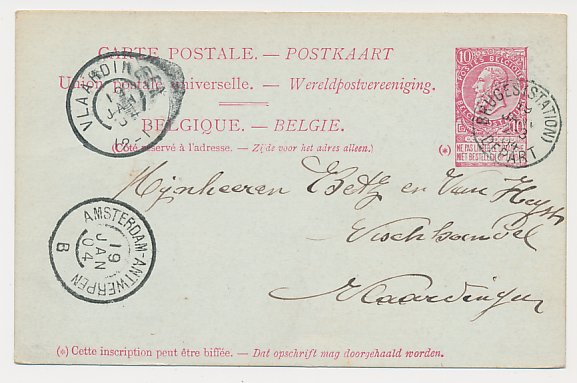 CARTE POSTALE. — POSTKAART
Union postale universelle. — Wereldpostvereeniging.
BELGIQUE. — BELGIE.
(Côté réservé à l'adresse. — Zijde voor het adres alleen.)
(*)
10
10
POSTES BELGIQUE
NE PAS LIVRER
NIET BESTELLEN
VLAARDINGEN
19
JAN
04
BRUGES (STATION)
DEPART
AMSTERDAM-ANTWERPEN
19
JAN
04
B
Mijnheeren Betz en Van Heyst
Vischhandel
Vlaardingen
(*) Cette inscription peut être biffée. — Dat opschrift mag doorgehaald worden.